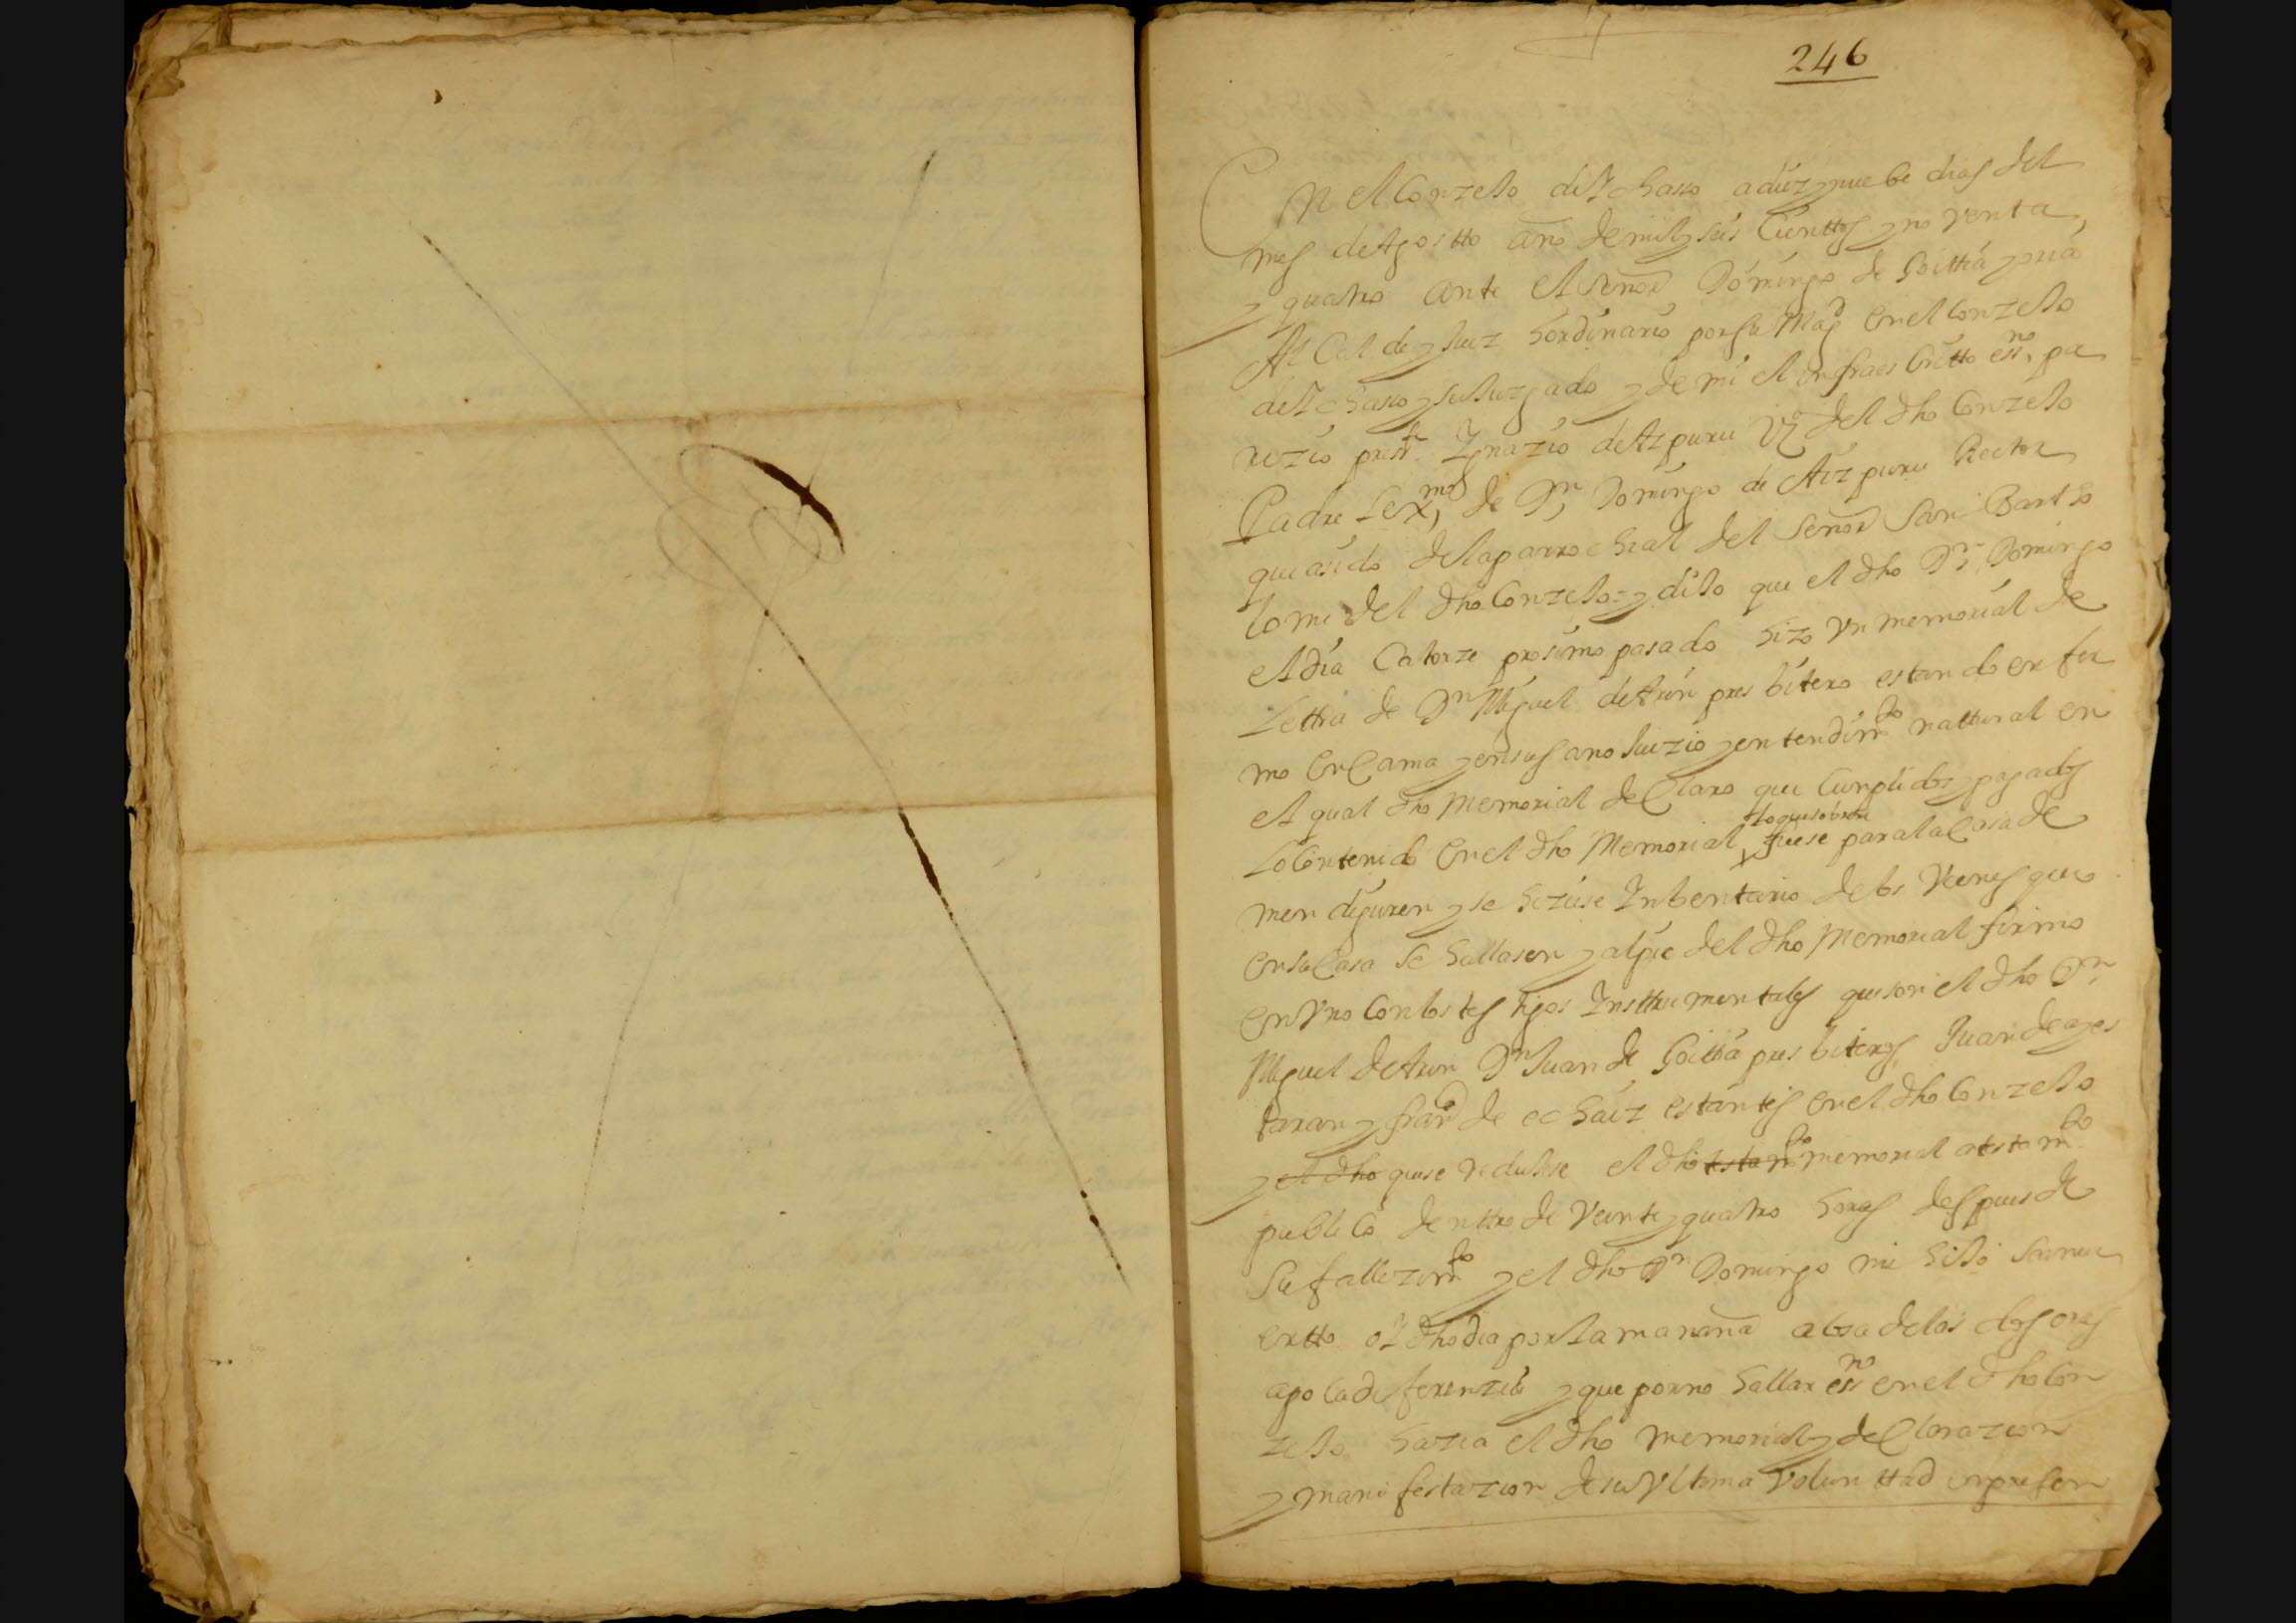 246
En el Conzejo de Ychaso a diez y nuebe dias del
mes de Agostto año de mil y seis Cienttos y noventa
y quatro ante el Señor Domingo de Goittia
Alcalde y Juez hordinario por su Magd en el Conzejo
de Ychaso y su Juzgado y de mi el infraescritto essno pa
rezio presste Ygnazio de Azpuru vº del dho Conzejo
Padre lexmo de Dn Domingo de Aizpuru Rector
que a sido de la parrochial del Señor San Bartho
lome del dho Conzejo = y dijo que el dho Dn Domingo
el dia Catorze prosimo pasado hizo vn memorial de
Lettra de Dn Miguel de Arin presbitero estando enfer
mo en Cama y en su sano Juizio y entendimto nattural en
el qual dho Memorial declaro que Cunplidos y pagados
lo Contenido en el dho Memorial lo que sobrare fuese para la Casa de
mendiguren y se hiziese Inbentario de los Vienes que
en su Casa se hallasen y al pie del dho Memorial firmo
en Vno Con los testigos Insttrumentales que son el dho Dn
Miguel de Arin Dn Juan de Goittia presbiteros Juan de ayes
taran y franco de echaiz estantes en el dho Conzejo
y el dho que se redujese el dho testamto memorial a testamto
publico denttro de Veinte y quatro horas despues de
su fallezimto y el dho Dn Domingo mi hijo se a mu
ertto oy dho dia por la mañana a ora de las dos oras
apoca diferenzia y que por no hallar essno en el dho Con
zejo hazia el dho memorial y declarazion
y manifestazion de su Vltima Volunttad en presen